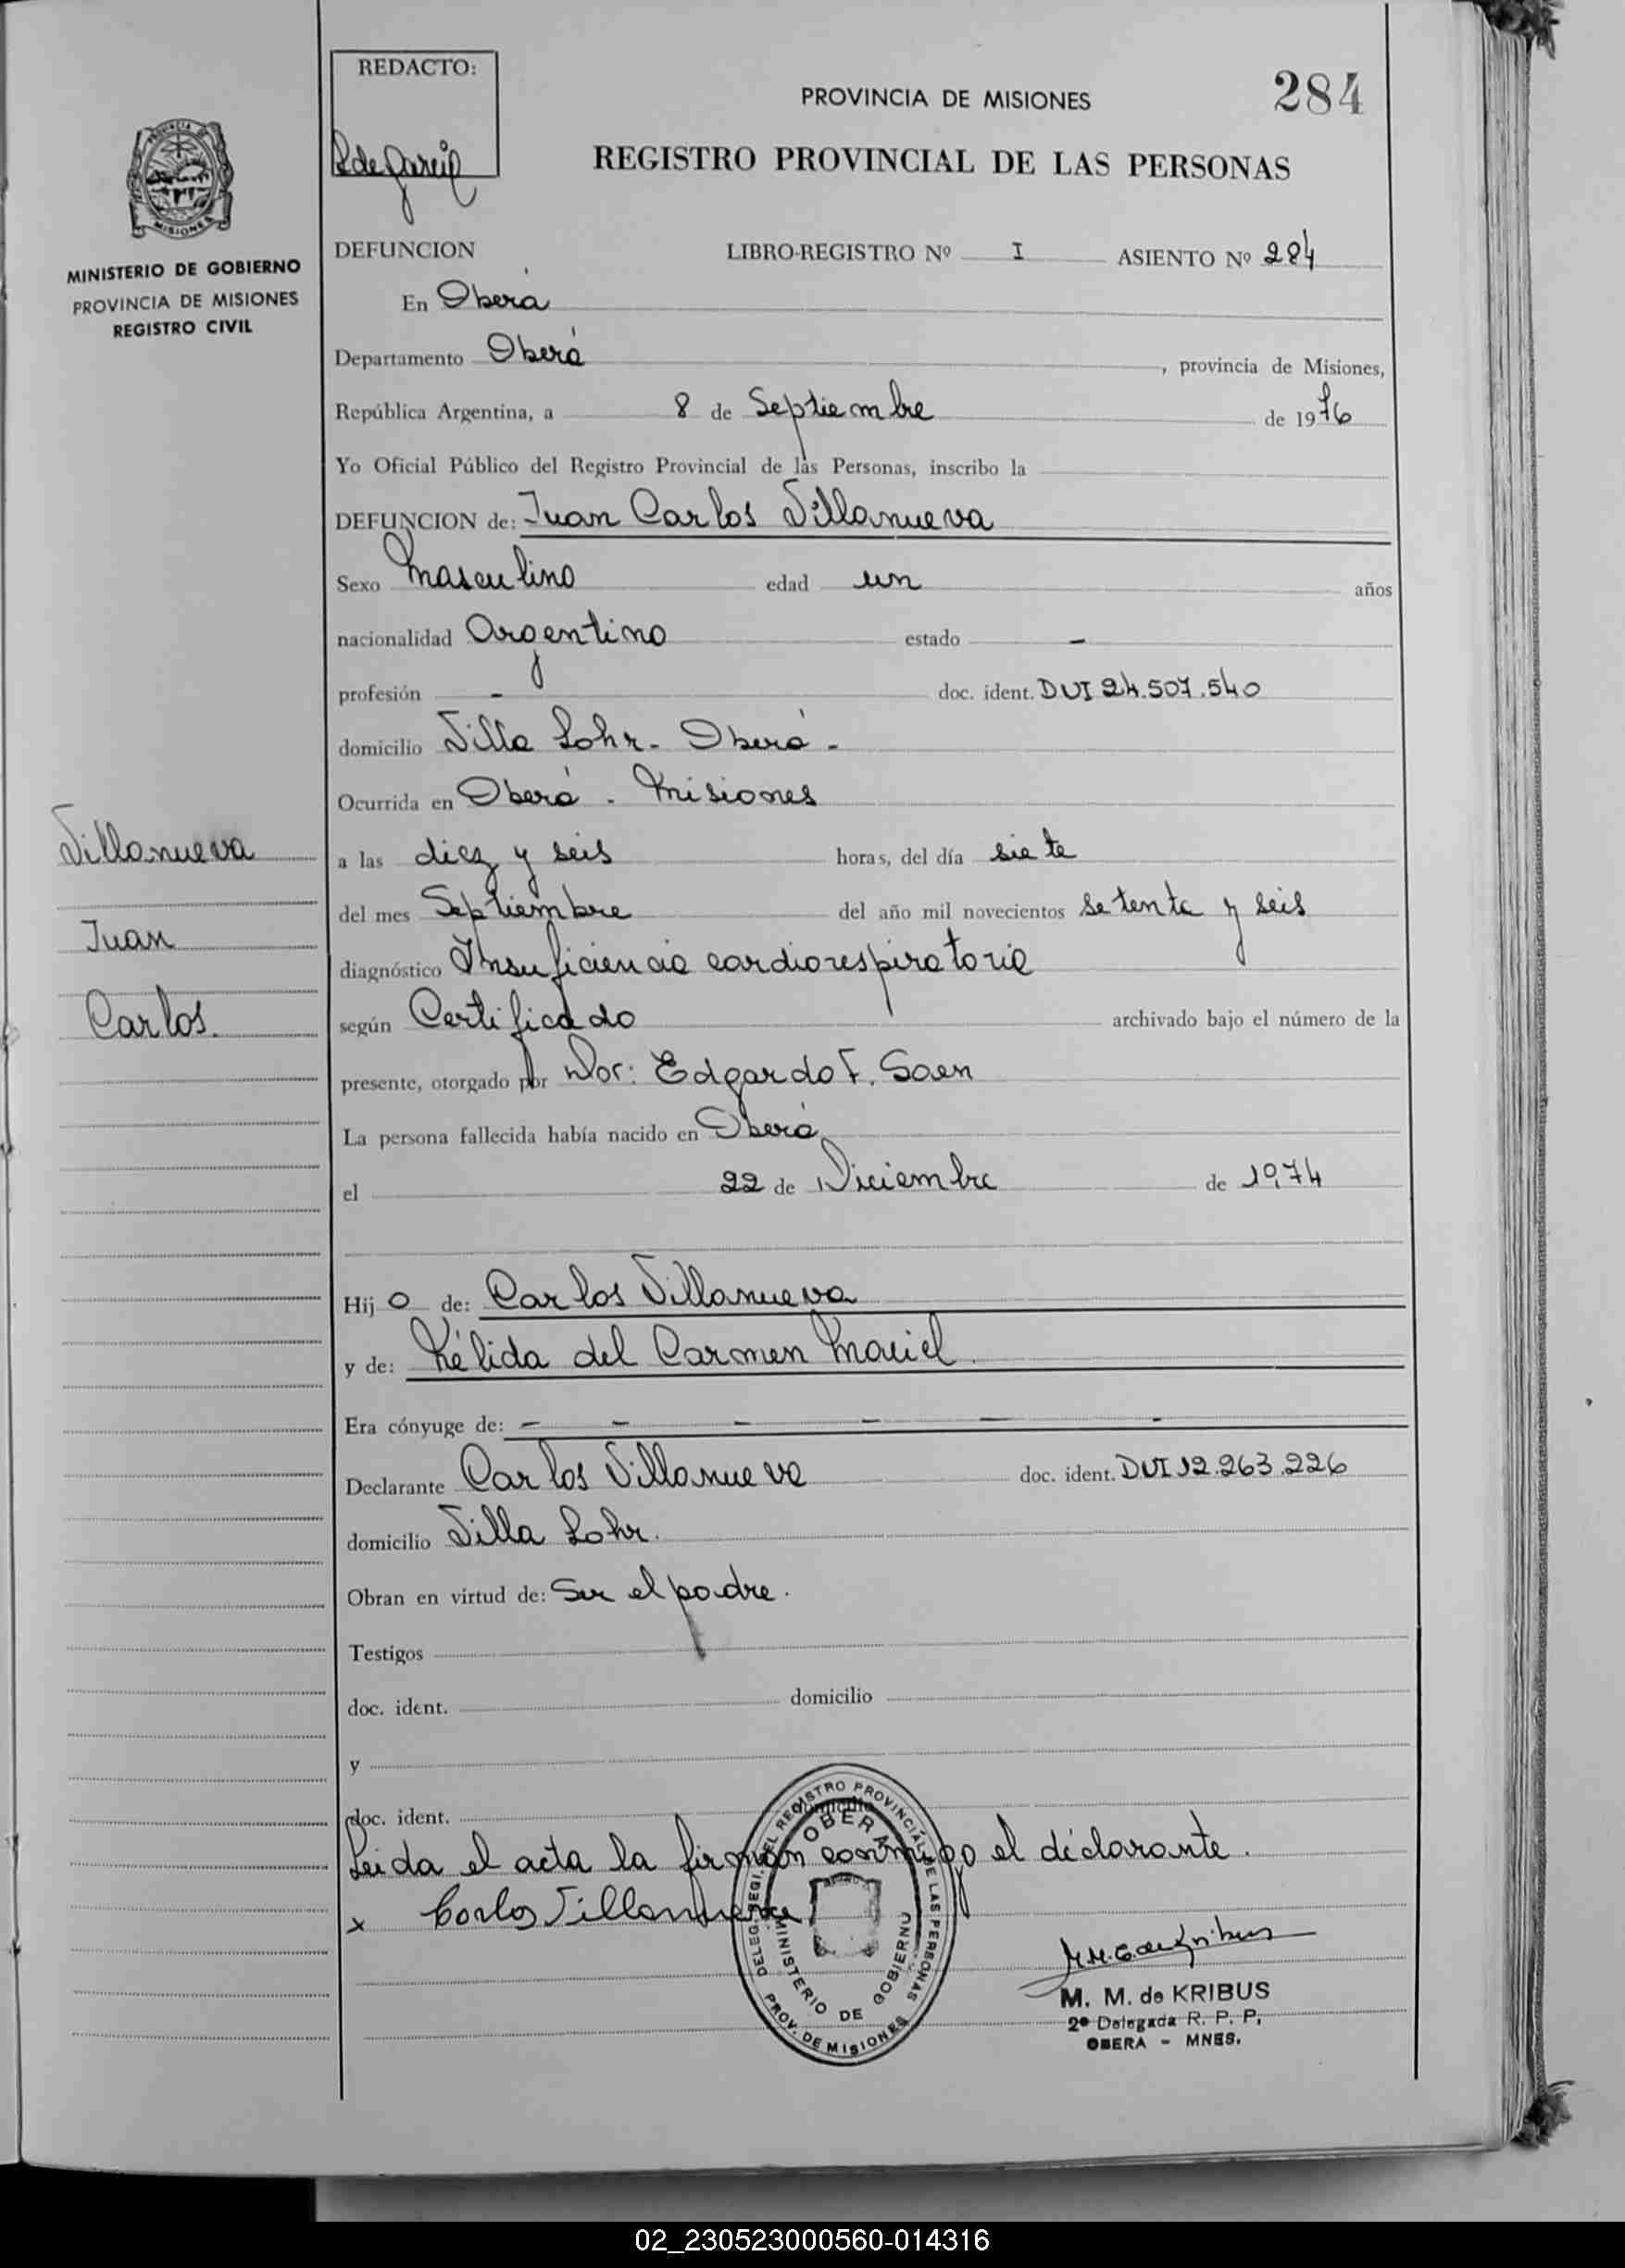 REDACTO:
PROVINCIA DE MISIONES
284
REGISTRO PROVINCIAL DE LAS PERSONAS
PROVINCIA DE
MISIONES
MINISTERIO DE GOBIERNO
PROVINCIA DE MISIONES
REGISTRO CIVIL
DEFUNCION LIBRO-REGISTRO Nº I ASIENTO Nº 284
En Oberá
Departamento Oberá, provincia de Misiones,
República Argentina, a 8 de Septiembre de 1976
Yo Oficial Público del Registro Provincial de las Personas, inscribo la
DEFUNCION de: Juan Carlos Villanueva
Sexo Masculino edad un años
nacionalidad Argentino estado -
profesión - doc. ident. DUI 24.507.540
domicilio Villa Lohr - Oberá -
Ocurrida en Oberá - Misiones
Villanueva
Juan
Carlos.
a las diez y seis horas, del día siete
del mes Septiembre del año mil novecientos setenta y seis
diagnóstico Insuficiencia cardiorespiratoria
según Certificado archivado bajo el número de la
presente, otorgado por Dor: Edgardo F. Saen
La persona fallecida había nacido en Oberá
el 22 de Diciembre de 1974
Hij o de: Carlos Villanueva
y de: Nélida del Carmen Maciel
Era cónyuge de: - - - - - -
Declarante Carlos Villanueva doc. ident. DUI 12.263.226
domicilio Villa Lohr.
Obran en virtud de: Ser el padre.
Testigos
doc. ident. domicilio
y
doc. ident. domicilio
Leida el acta la firman conmigo el declarante.
x Carlos Villanueva
DELEG. REGI. DEL REGISTRO PROVINCIAL DE LAS PERSONAS
OBERA
MINISTERIO DE GOBIERNO
PROV. DE MISIONES
M. M. de KRIBUS
2ª Delegada R. P. P.
OBERA - MNES.
02_230523000560-014316